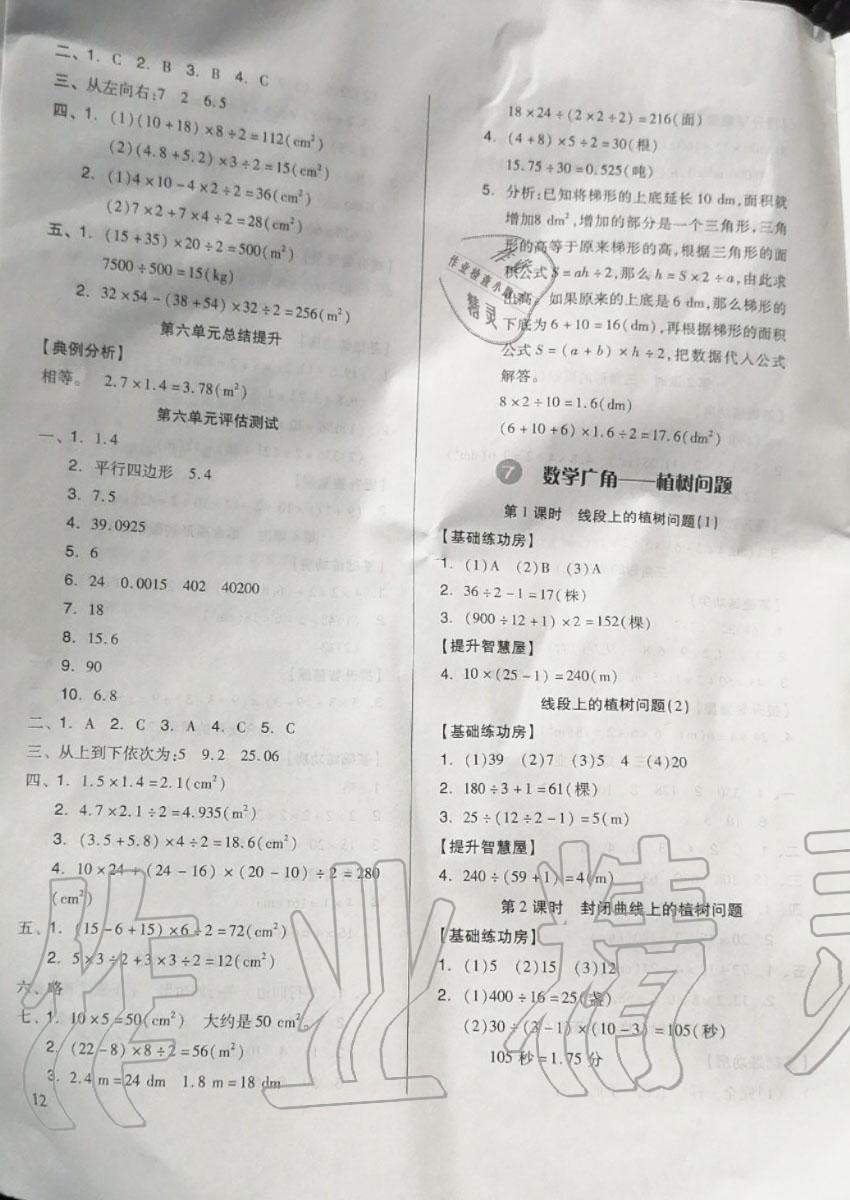 二、1. C  2. B  3. B  4. C
三、从左向右:7  2  6.5
四、1. (1)(10+18)×8÷2=112(cm²)
(2)(4.8+5.2)×3÷2=15(cm²)
2. (1)4×10-4×2÷2=36(cm²)
(2)7×2+7×4÷2=28(cm²)
五、1. (15+35)×20÷2=500(m²)
7500÷500=15(kg)
2. 32×54-(38+54)×32÷2=256(m²)
第六单元总结提升
【典例分析】
相等。 2.7×1.4=3.78(m²)
第六单元评估测试
一、1. 1.4
2. 平行四边形  5.4
3. 7.5
4. 39.0925
5. 6
6. 24  0.0015  402  40200
7. 18
8. 15.6
9. 90
10. 6.8
二、1. A  2. C  3. A  4. C  5. C
三、从上到下依次为:5  9.2  25.06
四、1. 1.5×1.4=2.1(cm²)
2. 4.7×2.1÷2=4.935(m²)
3. (3.5+5.8)×4÷2=18.6(cm²)
4. 10×24+(24-16)×(20-10)÷2=280
(cm²)
五、1. (15-6+15)×6÷2=72(cm²)
2. 5×3÷2+3×3÷2=12(cm²)
六、略
七、1. 10×5=50(cm²)  大约是50 cm²。
2. (22-8)×8÷2=56(m²)
3. 2.4 m=24 dm  1.8 m=18 dm
12
18×24÷(2×2÷2)=216(面)
4. (4+8)×5÷2=30(根)
15.75÷30=0.525(吨)
5. 分析:已知将梯形的上底延长10 dm,面积就
增加8 dm²,增加的部分是一个三角形,三角
形的高等于原来梯形的高,根据三角形的面
积公式S=ah÷2,那么h=S×2÷a,由此求
出高。如果原来的上底是6 dm,那么梯形的
下底为6+10=16(dm),再根据梯形的面积
公式S=(a+b)×h÷2,把数据代人公式
解答。
8×2÷10=1.6(dm)
(6+10+6)×1.6÷2=17.6(dm²)
7 数学广角——植树问题
第1课时 线段上的植树问题(1)
【基础练功房】
1. (1)A  (2)B  (3)A
2. 36÷2-1=17(株)
3. (900÷12+1)×2=152(棵)
【提升智慧屋】
4. 10×(25-1)=240(m)
线段上的植树问题(2)
【基础练功房】
1. (1)39  (2)7  (3)5  4  (4)20
2. 180÷3+1=61(棵)
3. 25÷(12÷2-1)=5(m)
【提升智慧屋】
4. 240÷(59+1)=4(m)
第2课时 封闭曲线上的植树问题
【基础练功房】
1. (1)5  (2)15  (3)12
2. (1)400÷16=25(盏)
(2)30÷(3-1)×(10-3)=105(秒)
105秒=1.75分
作业检查小
精灵
作业精灵